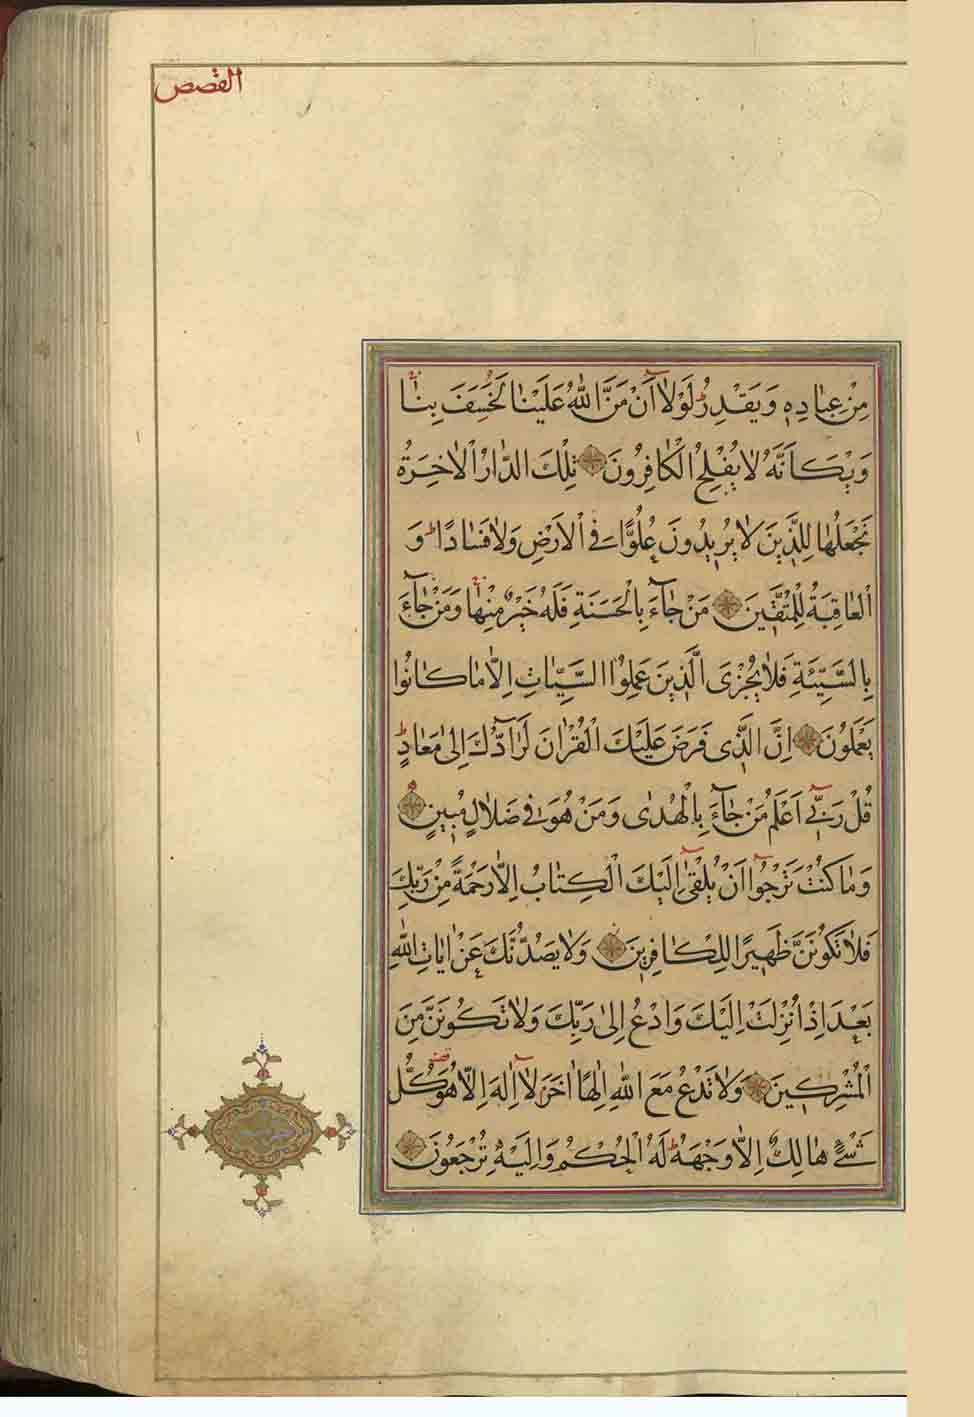 القصص
مِنْ عِبَادِهِ وَيَقْدِرُ لَوْلَا أَنْ مَنَّ اللّٰهُ عَلَيْنَا لَخَسَفَ بِنَا
وَيْكَاَنَّهُ لَا يُفْلِحُ الْكَافِرُونَ تِلْكَ الدَّارُ الْاٰخِرَةُ
نَجْعَلُهَا لِلَّذِينَ لَا يُرِيدُونَ عُلُوًّا فِي الْاَرْضِ وَلَا فَسَادًا وَ
الْعَاقِبَةُ لِلْمُتَّقِينَ مَنْ جَاءَ بِالْحَسَنَةِ فَلَهُ خَيْرٌ مِنْهَا وَمَنْ جَاءَ
بِالسَّيِّئَةِ فَلَا يُجْزَى الَّذِينَ عَمِلُوا السَّيِّاٰتِ اِلَّا مَا كَانُوا
يَعْمَلُونَ اِنَّ الَّذِى فَرَضَ عَلَيْكَ الْقُرْاٰنَ لَرَادُّكَ اِلٰى مَعَادٍ
قُلْ رَبِّى اَعْلَمُ مَنْ جَاءَ بِالْهُدٰى وَمَنْ هُوَ فِى ضَلَالٍ مُبِينٍ
وَمَا كُنْتَ تَرْجُوا اَنْ يُلْقٰى اِلَيْكَ الْكِتَابُ اِلَّا رَحْمَةً مِنْ رَبِّكَ
فَلَا تَكُونَنَّ ظَهِيرًا لِلْكَافِرِينَ وَلَا يَصُدُّنَّكَ عَنْ اٰيَاتِ اللّٰهِ
بَعْدَ اِذْ اُنْزِلَتْ اِلَيْكَ وَادْعُ اِلٰى رَبِّكَ وَلَا تَكُونَنَّ مِنَ
الْمُشْرِكِينَ وَلَا تَدْعُ مَعَ اللّٰهِ اِلٰهًا اٰخَرَ لَا اِلٰهَ اِلَّا هُوَ كُلُّ
شَىْءٍ هَالِكٌ اِلَّا وَجْهَهُ لَهُ الْحُكْمُ وَاِلَيْهِ تُرْجَعُونَ